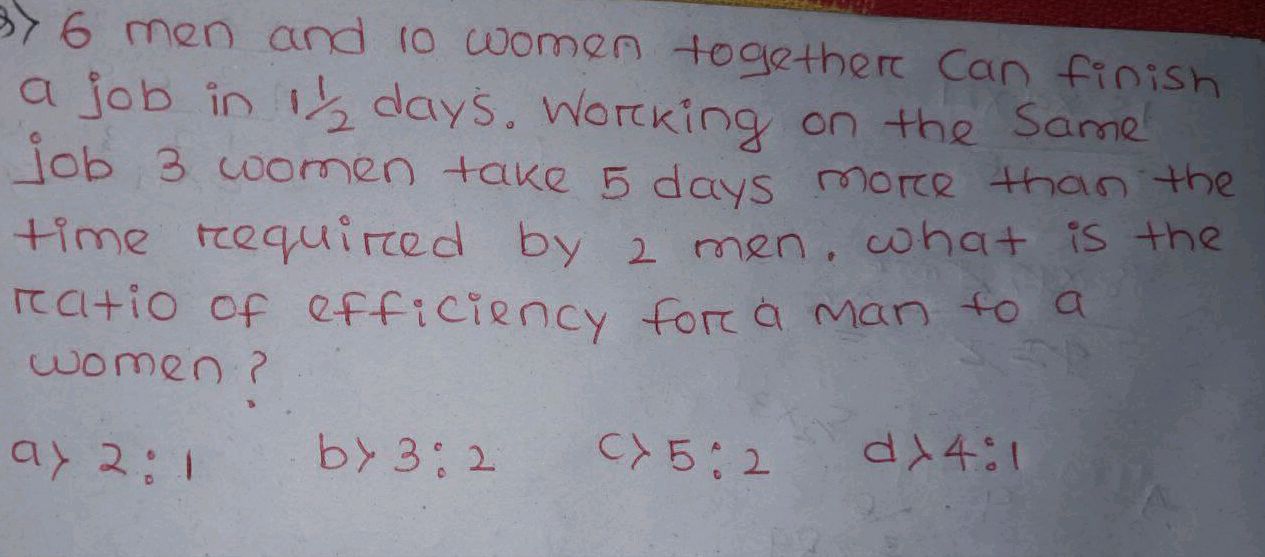 3> 6 men and 10 women together can finish
a job in 1 1/2 days. Working on the same
job 3 women take 5 days more than the
time required by 2 men. what is the
ratio of efficiency for a man to a
women?
a> 2:1 b> 3:2 c> 5:2 d> 4:1